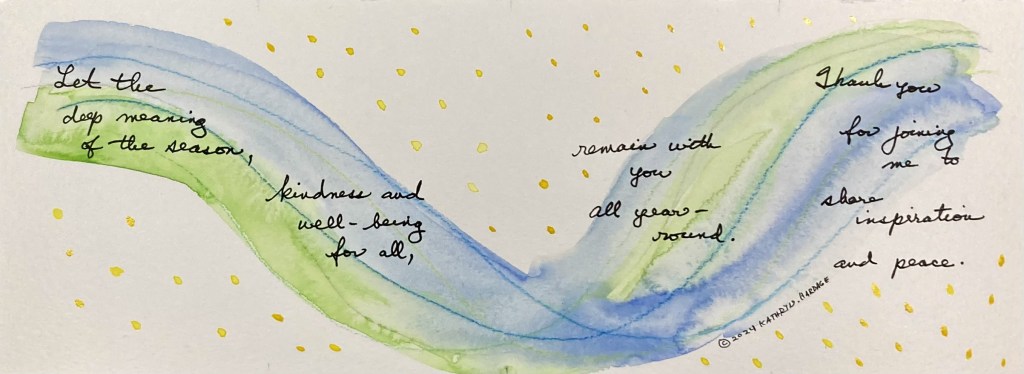 Let the
deep meaning
of the season,
kindness and
well-being
for all,
remain with
you
all year-
round.
Thank you
for joining
me to
share
inspiration
and peace.
© 2024 KATHRYN. HARDAGE